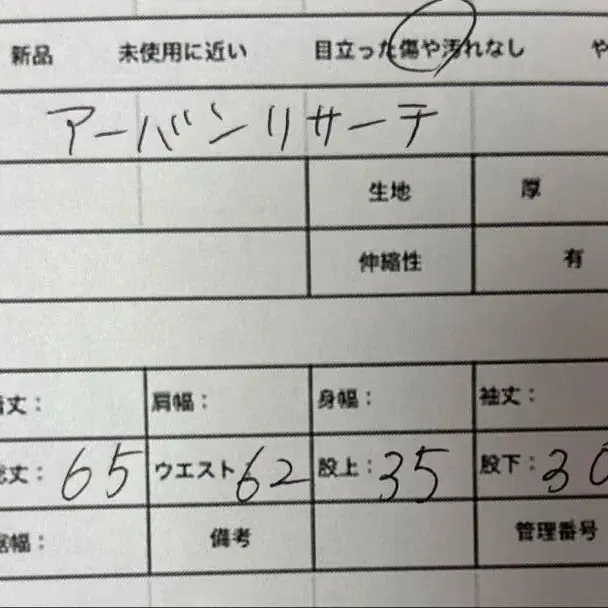 新品 未使用に近い 目立った傷や汚れなし や
アーバンリサーチ
生地 厚
伸縮性 有
着丈： 肩幅： 身幅： 袖丈：
総丈：65 ウエスト62 股上：35 股下：30
裾幅： 備考 管理番号